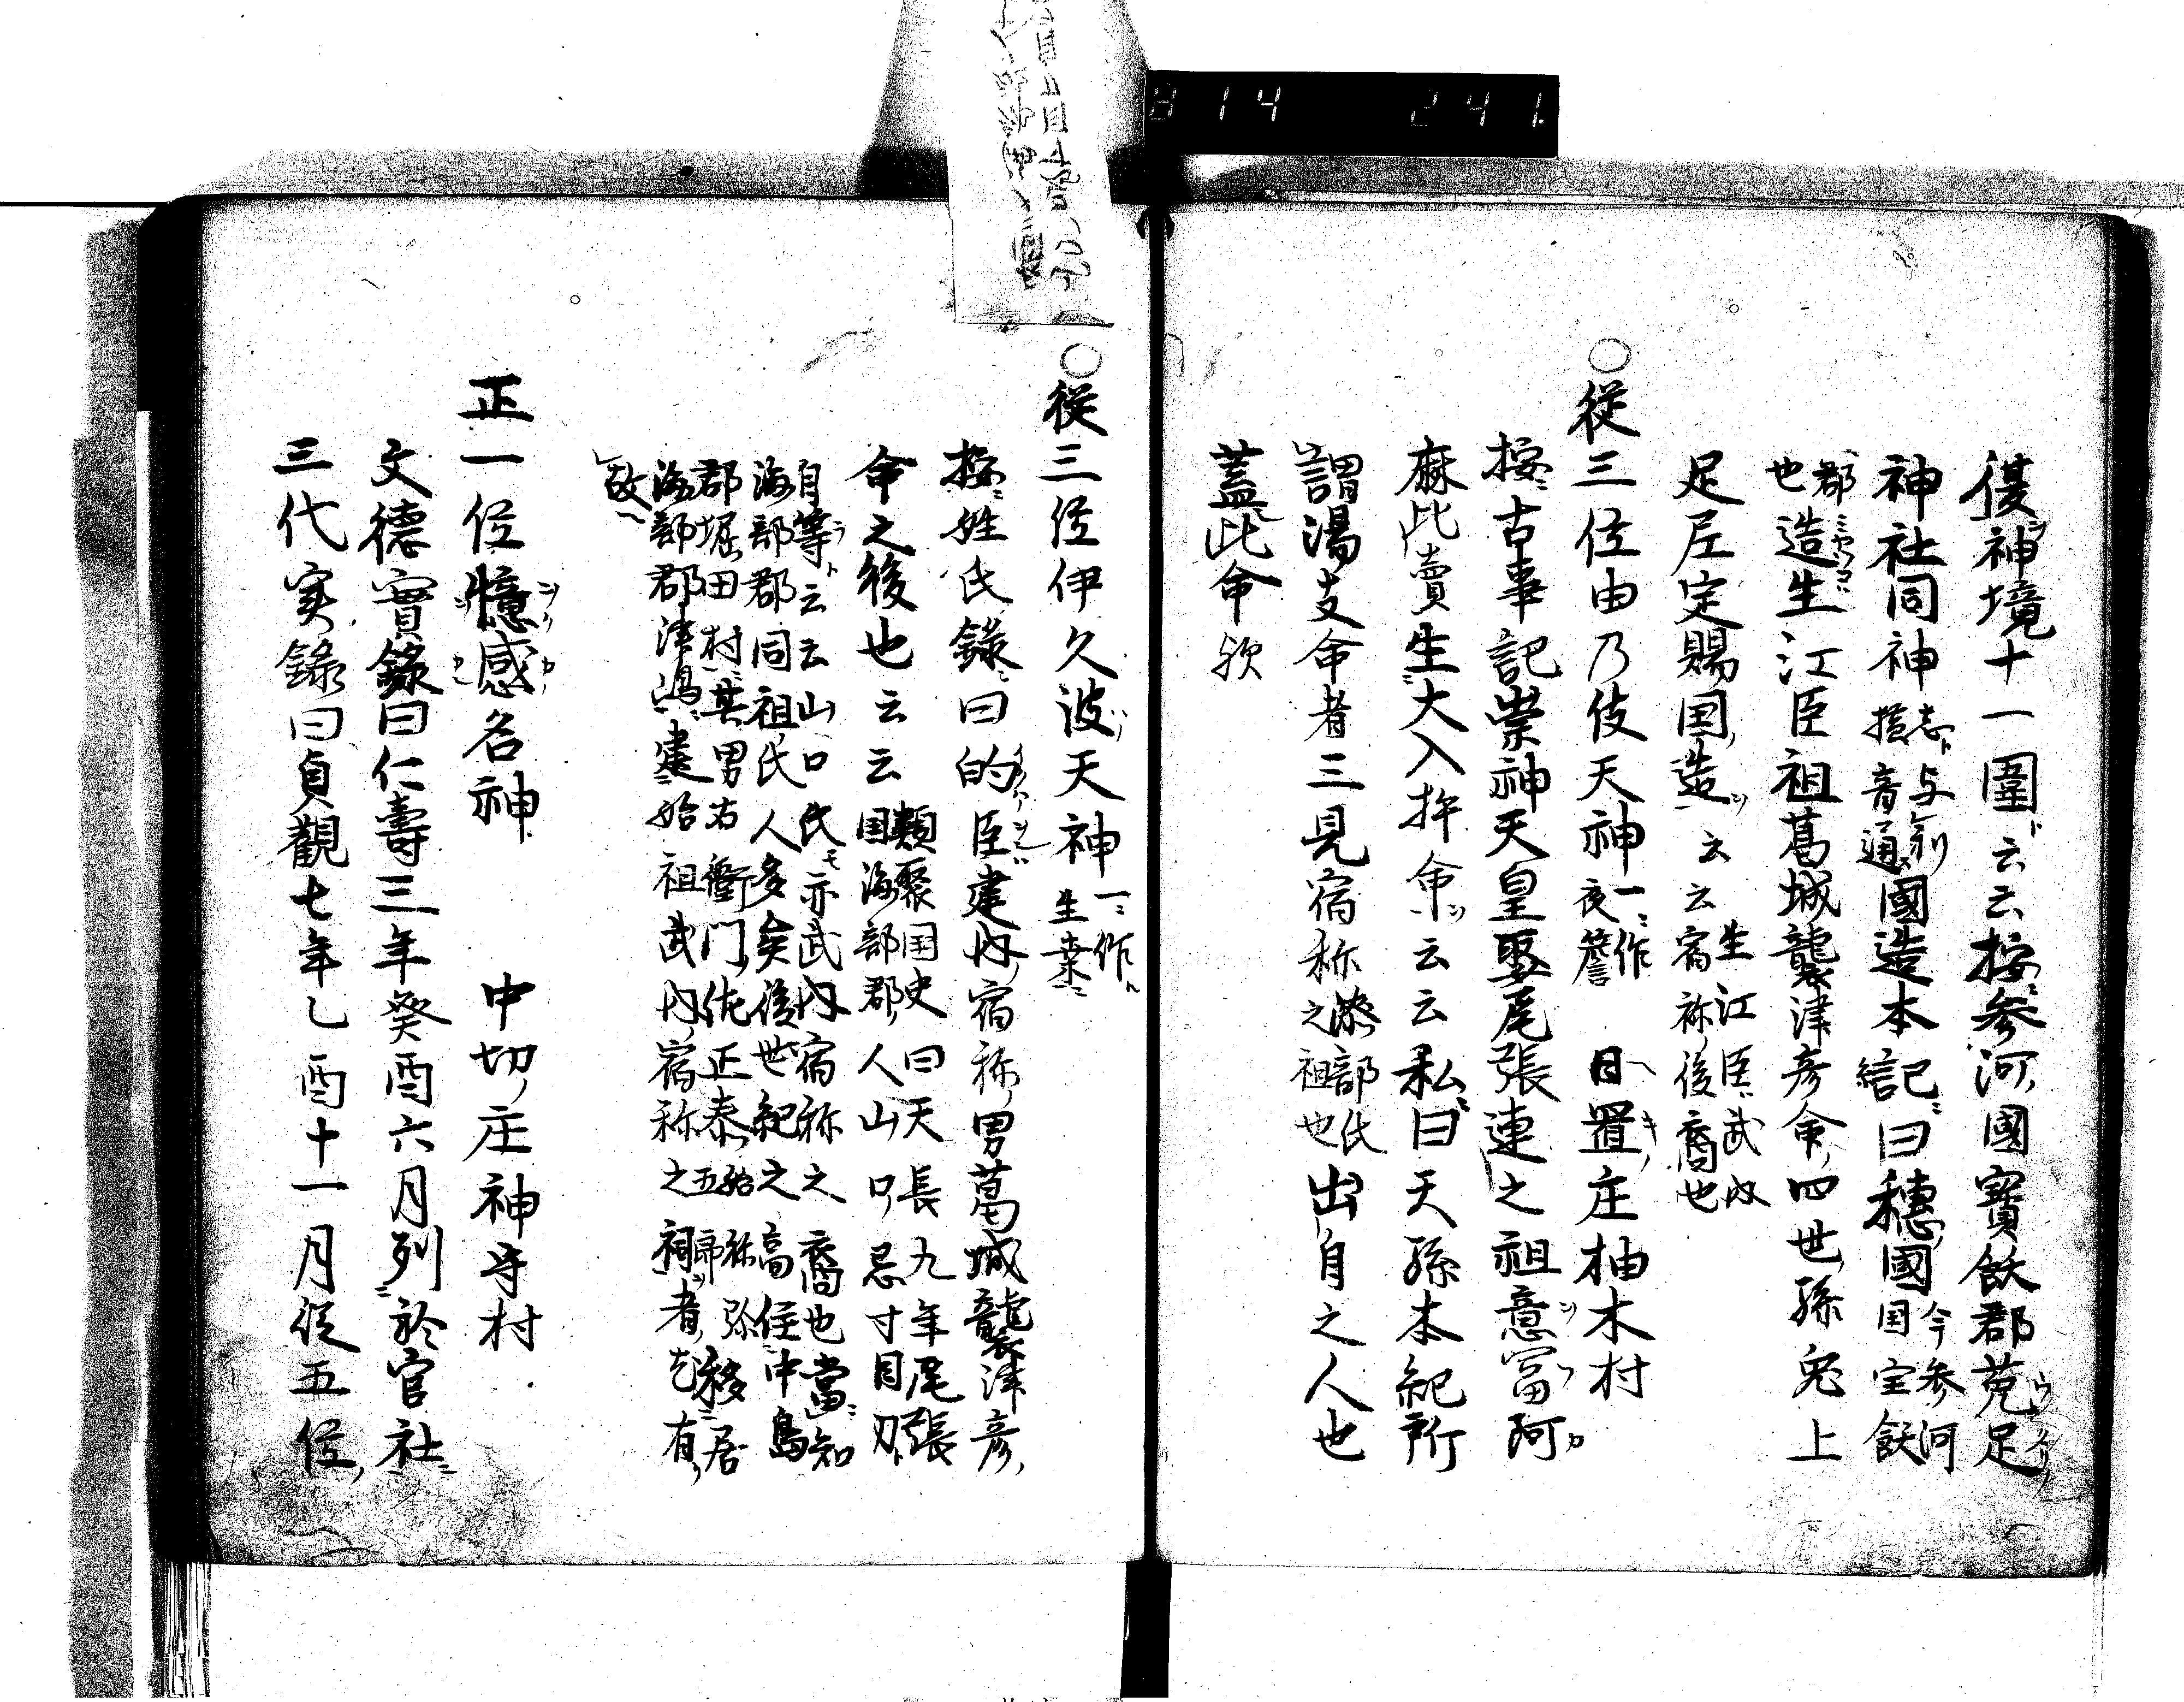 814 241
後神境十一圍云云按参河國寳飫郡菟足
神社同神 志与剣 音通 國造本記曰穂國 今参河 国宝飫
郡也 造生江臣祖葛城襲津彦命四世孫兔上
足尼定賜国造云云 生江臣武内 宿祢後裔也
○従三位由乃伎天神 一作 夜簷 日置庄柚木村
按古事記崇神天皇娶尾張連之祖意富阿
麻比賣生大入杵命云云私曰天孫本紀所
謂湯支命者三見宿祢之 部氏 祖也 出自之人也
蓋此命欤
○従三位伊久波天神 一作 生桒
按姓氏錄曰的臣建内宿祢男葛城襲津彦
命之後也云云 類聚国史曰天長九年尾張
国海部郡人山口忌寸目刀
自等云云山口氏モ亦武内宿祢之裔也當知
海部郡同祖氏人多矣後世紀之高住中島
郡堀田村其男右衞門佐正泰 始祢 移居
海部郡津嶋建始祖武内宿祢之祠者尤有
故
正一位憶感名神 中切庄神守村
文德實錄曰仁壽三年癸酉六月列於官社
三代実錄曰貞觀七年乙酉十一月從五位